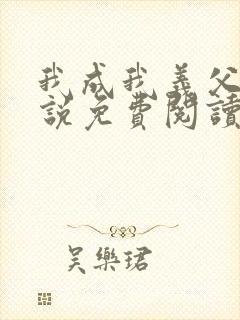 我成我義父
說免費閱讀
吳樂珺